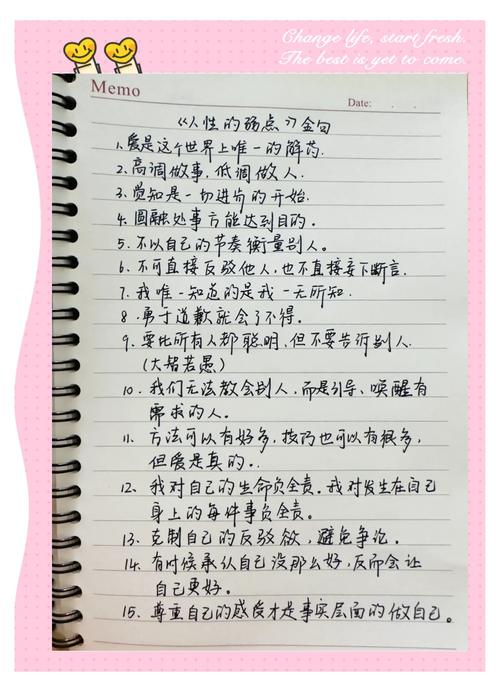 Change life, start fresh.
The best is yet to come.
Memo
Date:
《人性的弱点》金句
1、爱是这个世界上唯一的解药.
2、高调做事,低调做人.
3、觉知是一切进前的开始.
4、圆融处事方能达到目的。
5、不以自己的节奏衡量别人。
6、不可直接反驳他人,也不直接妄下断言.
7、我唯一知道的是我一无所知.
8、勇于道歉就会了不得。
9、要比所有人都聪明,但不要告诉别人.
(大智若愚)
10、我们无法教会别人,而是引导、唤醒有
需求的人。
11、方法可以有好多,技巧也可以有很多,
但爱是真的。
12、我对自己的生命负全责。我对发生在自己
身上的每件事负全责。
13、克制自己的反驳欲,避免争论。
14、有时候承认自己没那么好,反而会让
自己更好。
15、尊重自己的感受才是事实层面的做自己。